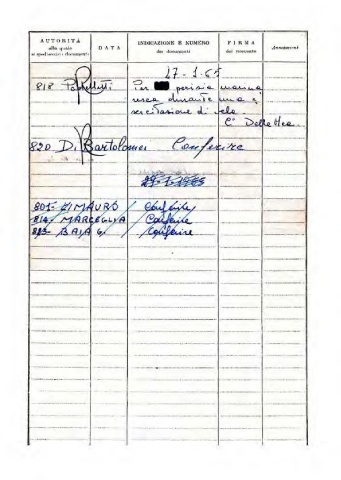 AUTORITÀ
alla quale
si spediscono i documenti
DATA
INDICAZIONE E NUMERO
dei documenti
FIRMA
del ricevente
Annotazioni
27-1-65
818
Per perizia marina
resca durante una e
sercitazione di vela
C° Della Mea
820 Di Bartolomei Conferire
29-1-1965
801- DIMAURO Conferire
814- MARCEGLIA Conferire
823- BAIA G. Conferire